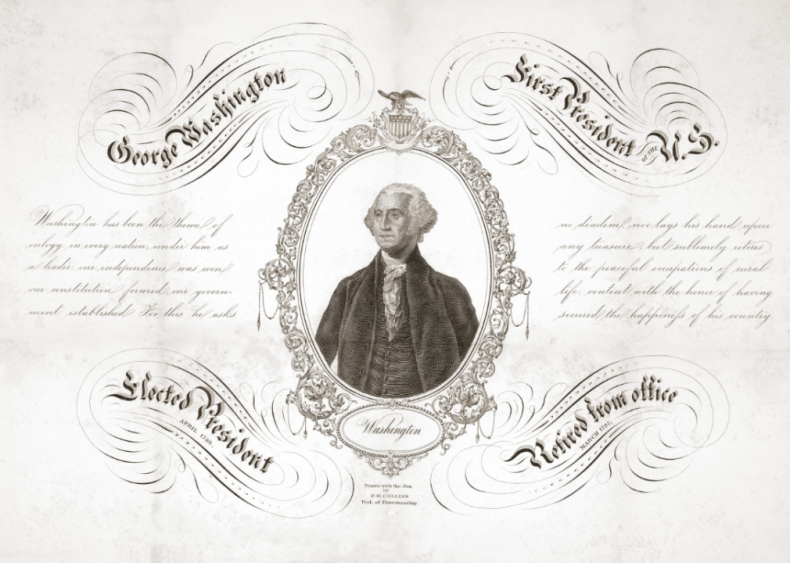 George Washington
First President OF THE U.S.
Washington has been the theme of
eulogy in every nation, under him as
a leader our independence was won,
our constitution formed, our govern-
ment established. For this he asks
no diadem, nor lays his hand upon
any treasure, but sublimely retires
to the peaceful occupations of rural
life, content with the honor of having
secured the happiness of his country.
Elected President
APRIL 1789
Retired from office
MARCH 1797.
Washington
with the Pen
by
Prof. of Penmanship